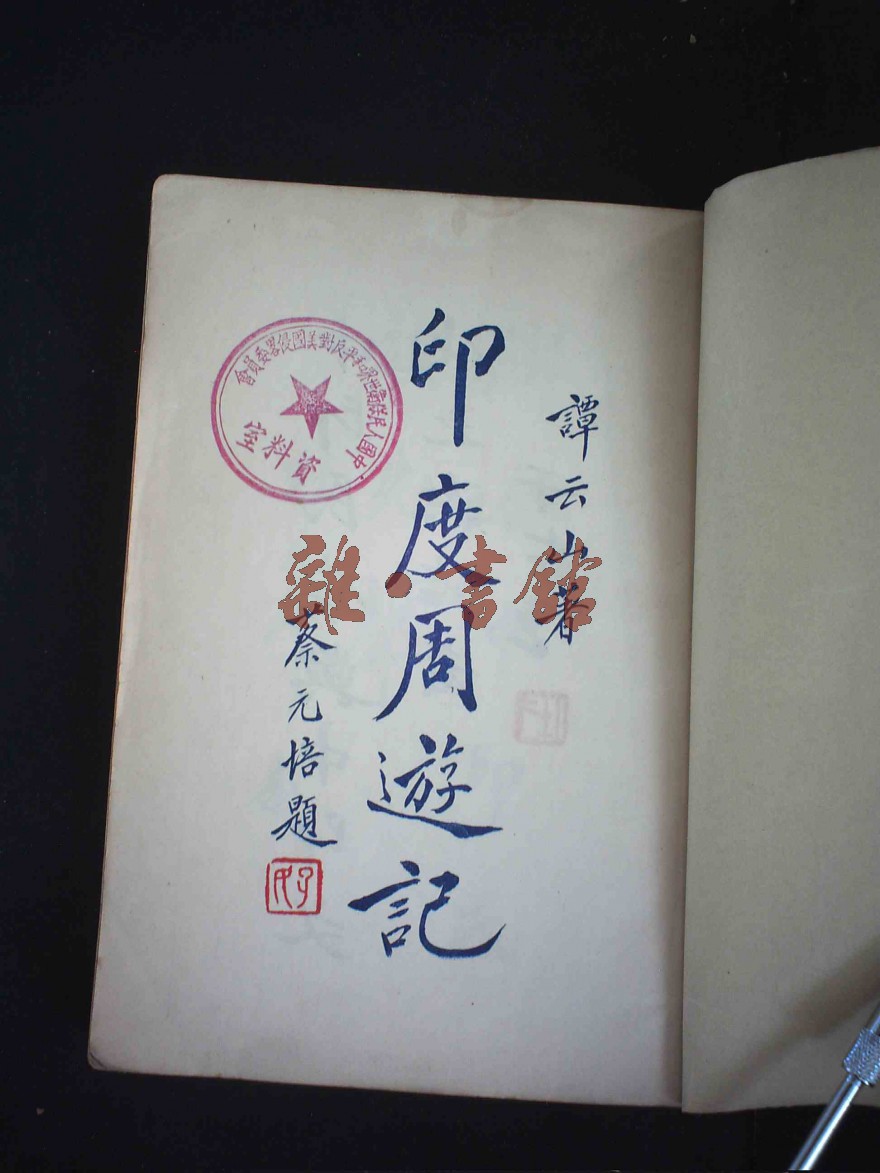 譚云山著
印度周遊記
蔡元培題
孑民
中國人民保衛世界和平反對美國侵略委員會
資料室
雜·書館